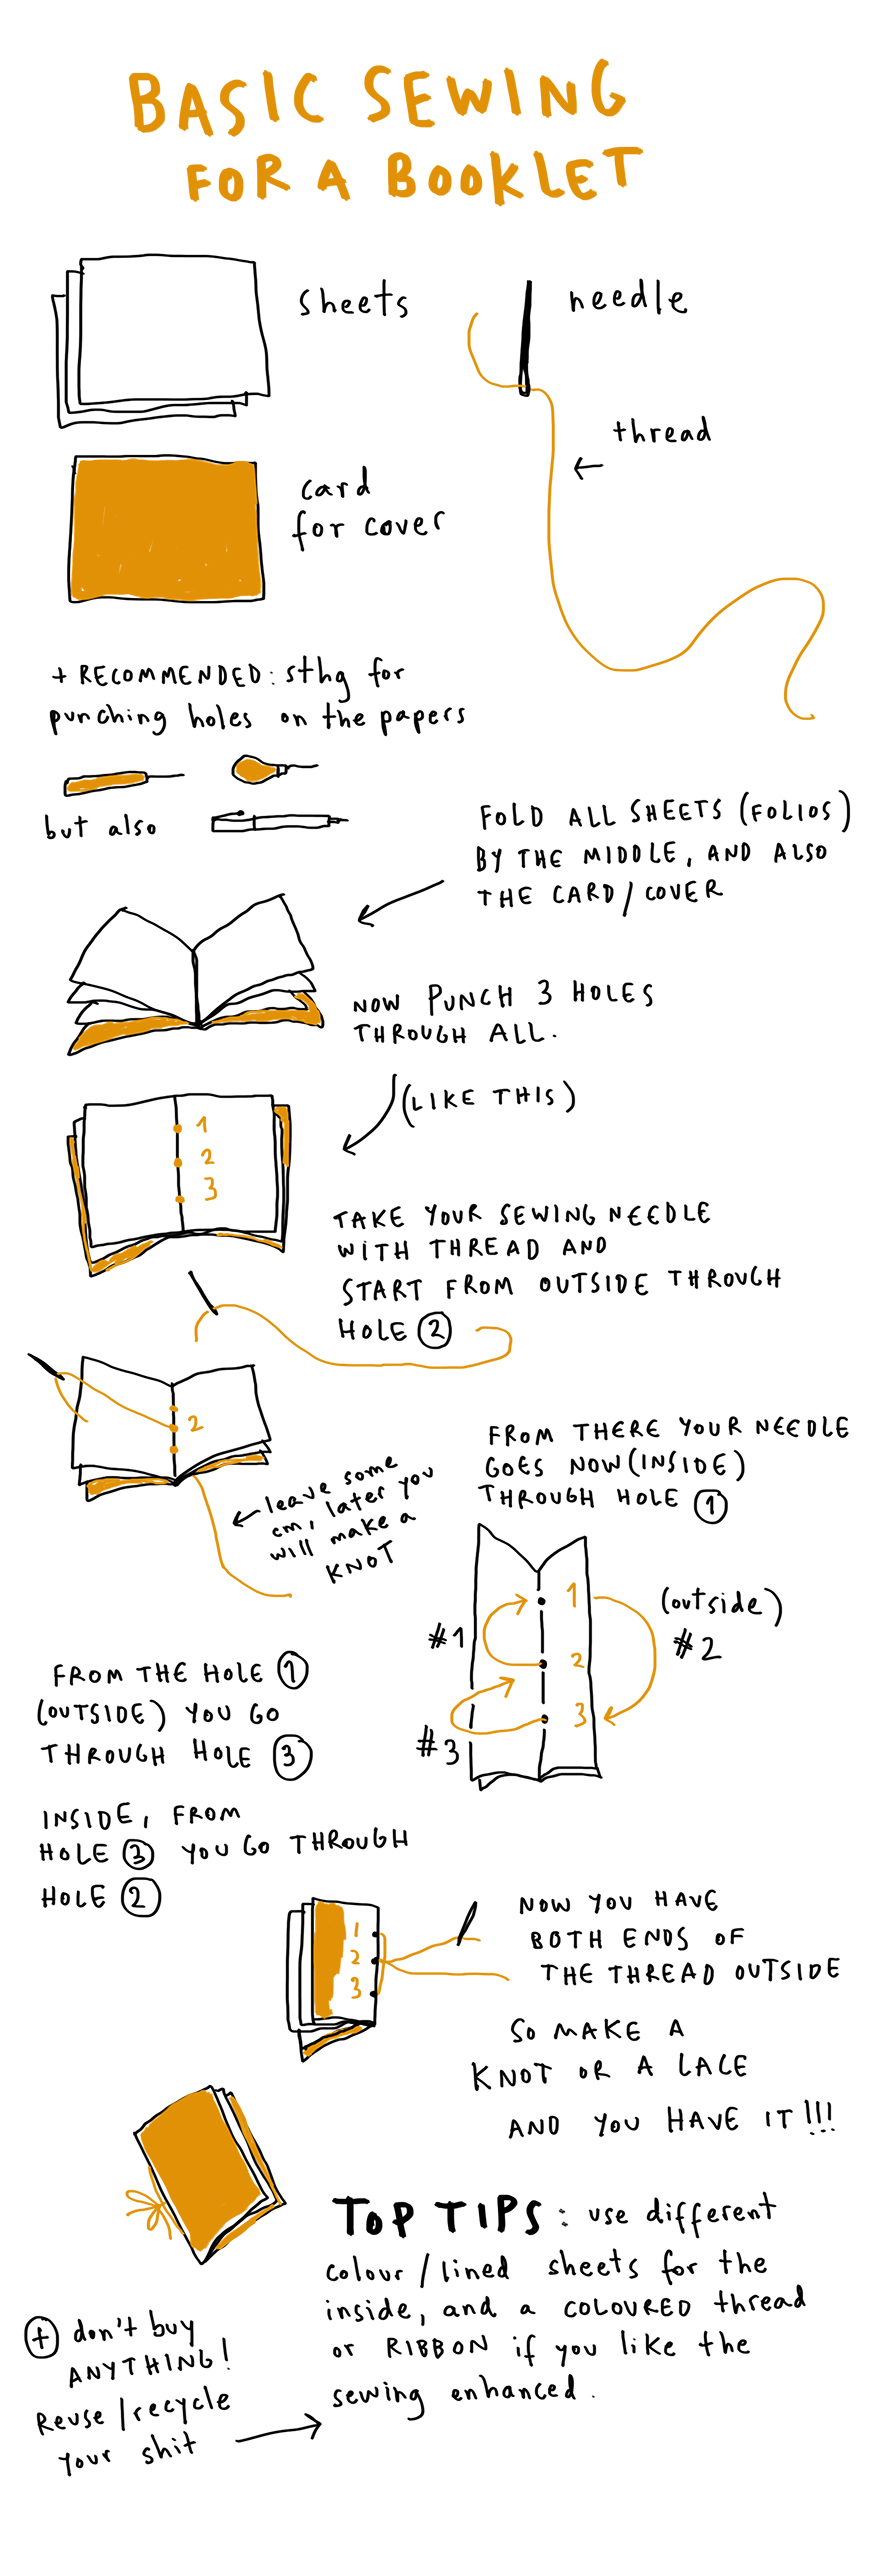 BASIC SEWING
FOR A BOOKLET
sheets
needle
thread
card
for cover
+ RECOMMENDED: sthg for
punching holes on the papers
but also
FOLD ALL SHEETS (FOLIOS)
BY THE MIDDLE, AND ALSO
THE CARD/COVER
NOW PUNCH 3 HOLES
THROUGH ALL.
(LIKE THIS)
1
2
3
TAKE YOUR SEWING NEEDLE
WITH THREAD AND
START FROM OUTSIDE THROUGH
HOLE 2
2
leave some
cm, later you
will make a
KNOT
FROM THERE YOUR NEEDLE
GOES NOW (INSIDE)
THROUGH HOLE 1
1
(outside)
#1
#2
2
3
#3
FROM THE HOLE 1
(OUTSIDE) YOU GO
THROUGH HOLE 3
INSIDE, FROM
HOLE 3 YOU GO THROUGH
HOLE 2
1
2
3
NOW YOU HAVE
BOTH ENDS OF
THE THREAD OUTSIDE
SO MAKE A
KNOT OR A LACE
AND YOU HAVE IT!!!
TOP TIPS: use different
colour/lined sheets for the
inside, and a COLOURED thread
or RIBBON if you like the
sewing enhanced.
+ don't buy
ANYTHING!
Reuse/recycle
your shit